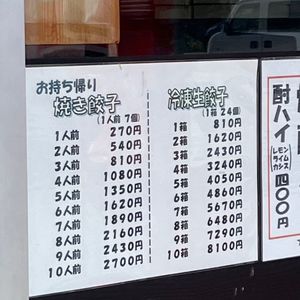 お持ち帰り
焼き餃子
(1人前 7個)
1人前 270円
2人前 540円
3人前 810円
4人前 1080円
5人前 1350円
6人前 1620円
7人前 1890円
8人前 2160円
9人前 2430円
10人前 2700円
冷凍生餃子
(1箱 24個)
1箱 810円
2箱 1620円
3箱 2430円
4箱 3240円
5箱 4050円
6箱 4860円
7箱 5670円
8箱 6480円
9箱 7290円
10箱 8100円
酎ハイ
レモン
ライム
カシス
四〇〇円